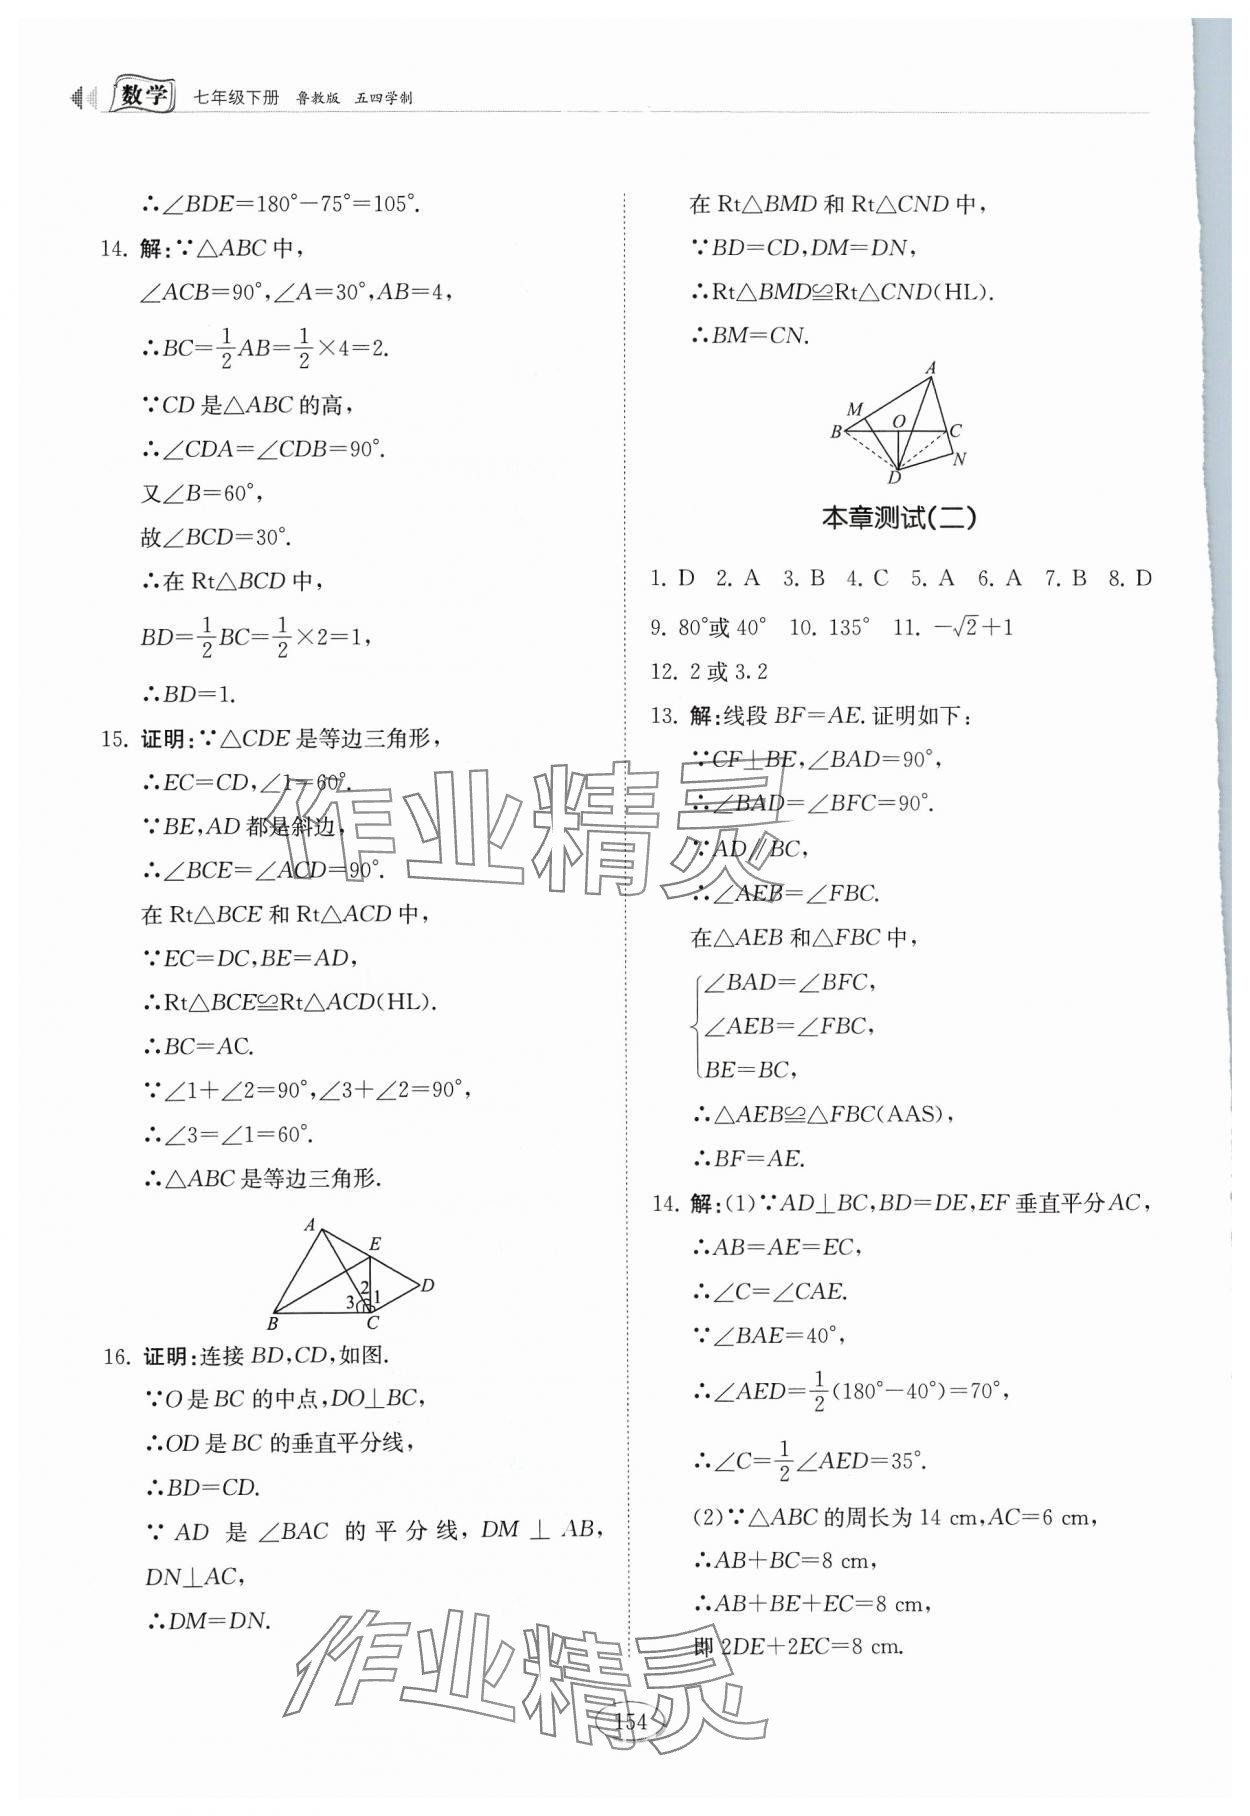 数学 七年级下册 鲁教版 五四学制
∴∠BDE=180°-75°=105°.
14. 解:∵△ABC中,
∠ACB=90°,∠A=30°,AB=4,
∴BC=1/2AB=1/2×4=2.
∵CD是△ABC的高,
∴∠CDA=∠CDB=90°.
又∠B=60°,
故∠BCD=30°.
∴在Rt△BCD中,
BD=1/2BC=1/2×2=1,
∴BD=1.
15. 证明:∵△CDE是等边三角形,
∴EC=CD,∠1=60°.
∵BE,AD都是斜边,
∴∠BCE=∠ACD=90°.
在Rt△BCE和Rt△ACD中,
∵EC=DC,BE=AD,
∴Rt△BCE≌Rt△ACD(HL).
∴BC=AC.
∵∠1+∠2=90°,∠3+∠2=90°,
∴∠3=∠1=60°.
∴△ABC是等边三角形.
A
E
D
2
3 1
B C
16. 证明:连接BD,CD,如图.
∵O是BC的中点,DO⊥BC,
∴OD是BC的垂直平分线,
∴BD=CD.
∵AD是∠BAC的平分线,DM⊥AB,
DN⊥AC,
∴DM=DN.
在Rt△BMD和Rt△CND中,
∵BD=CD,DM=DN,
∴Rt△BMD≌Rt△CND(HL).
∴BM=CN.
A
M
O
B C
N
D
本章测试(二)
1. D 2. A 3. B 4. C 5. A 6. A 7. B 8. D
9. 80°或40° 10. 135° 11. -√2+1
12. 2或3.2
13. 解:线段BF=AE.证明如下:
∵CF⊥BE,∠BAD=90°,
∴∠BAD=∠BFC=90°.
∵AD∥BC,
∴∠AEB=∠FBC.
在△AEB和△FBC中,
∠BAD=∠BFC,
∠AEB=∠FBC,
BE=BC,
∴△AEB≌△FBC(AAS),
∴BF=AE.
14. 解:(1)∵AD⊥BC,BD=DE,EF垂直平分AC,
∴AB=AE=EC,
∴∠C=∠CAE.
∵∠BAE=40°,
∴∠AED=1/2(180°-40°)=70°,
∴∠C=1/2∠AED=35°.
(2)∵△ABC的周长为14 cm,AC=6 cm,
∴AB+BC=8 cm,
∴AB+BE+EC=8 cm,
即2DE+2EC=8 cm.
作业精灵
作业精灵
154